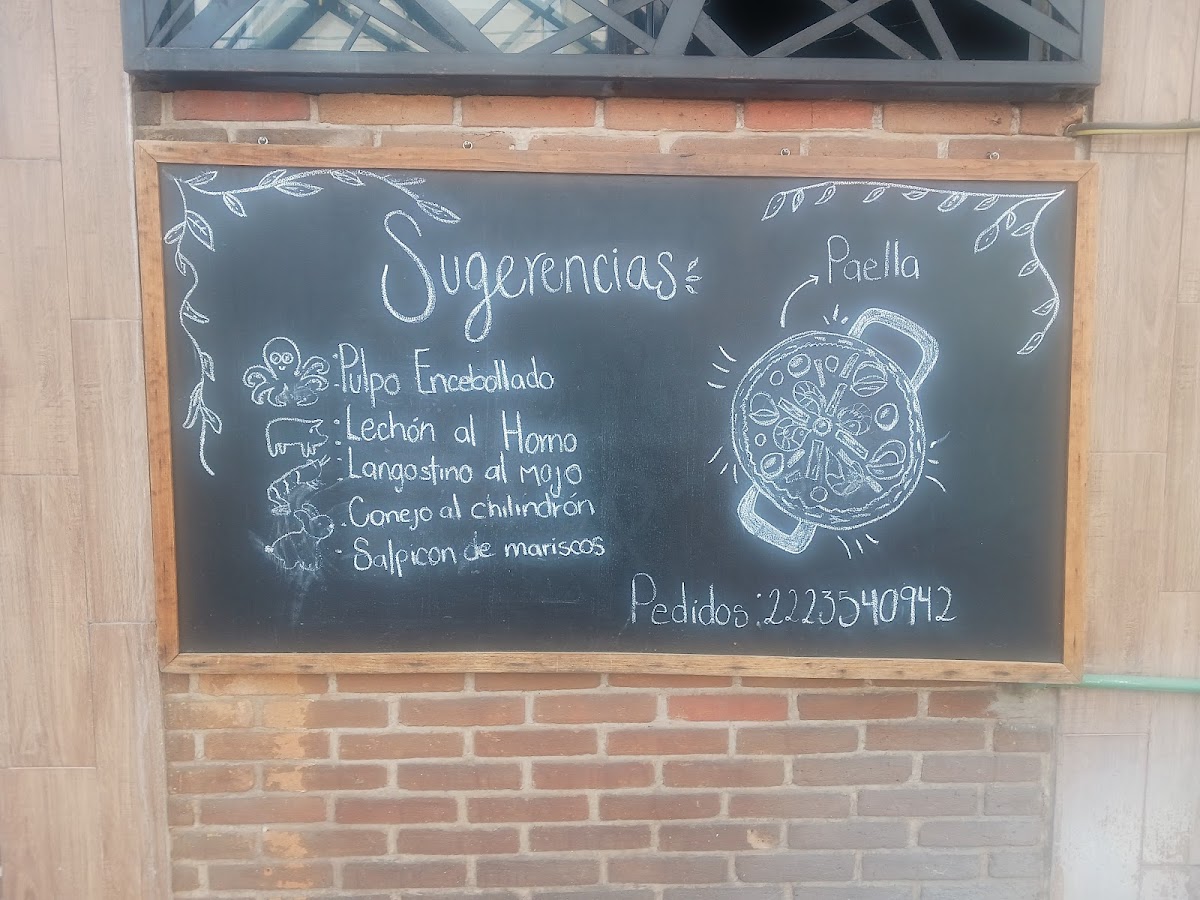 Sugerencias
Pulpo Encebollado
Lechón al Horno
Langostino al mojo
Conejo al chilindrón
Salpicon de mariscos
Paella
Pedidos: 2223540942